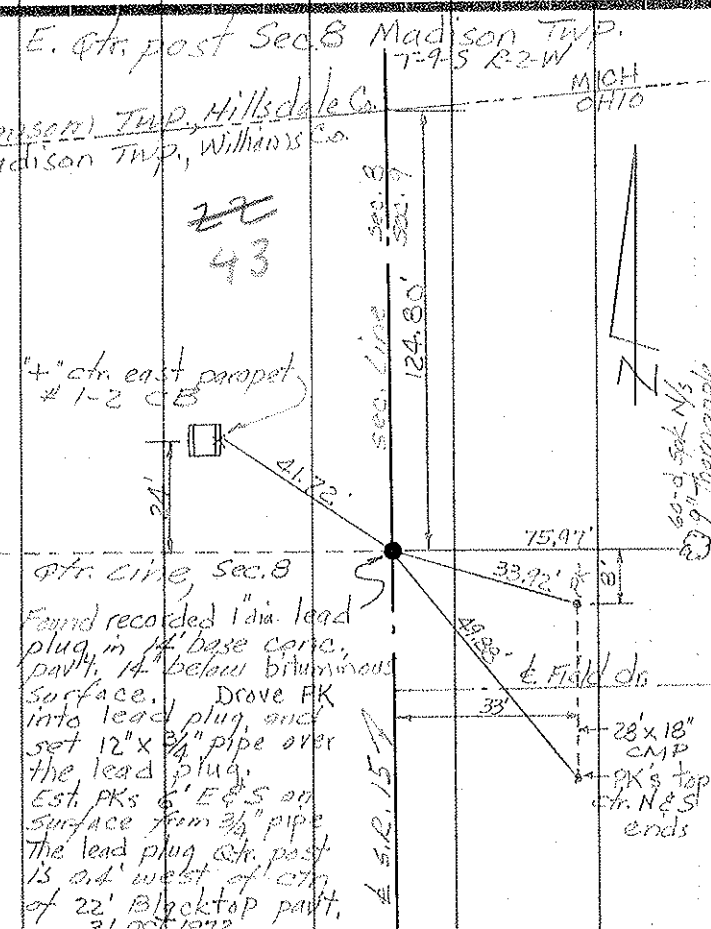 E. Qtr. post Sec.8 Madison Twp.
T-9-S R-2-W
MICH
OHIO
Twp., Hillsdale Co.
Madison Twp., Williams Co.
22
43
sec. 8
sec. 9
124.80'
sec. line
"+" ctr. east parapet
# 1-2 CB
24'
41.72'
N
60-d spk N/S
9" Thornapple
75.97'
33.92'
8'
49.88'
Qtr. Line, Sec.8
Found recorded 1" dia. lead
plug in 14' base conc.
pav't. 14" below bituminous
surface. Drove PK
into lead plug and
set 12" x 3/4" pipe over
the lead plug.
Est. PKs 6' E & S on
surface from 3/4" pipe
The lead plug Qtr. post
is 0.4' west of
of 22' Blacktop pav't.
31 Oct 1972
℄ Field dr.
33'
28' x 18"
CMP
PK's top
ctr. N & S
ends
℄ S.R. 15